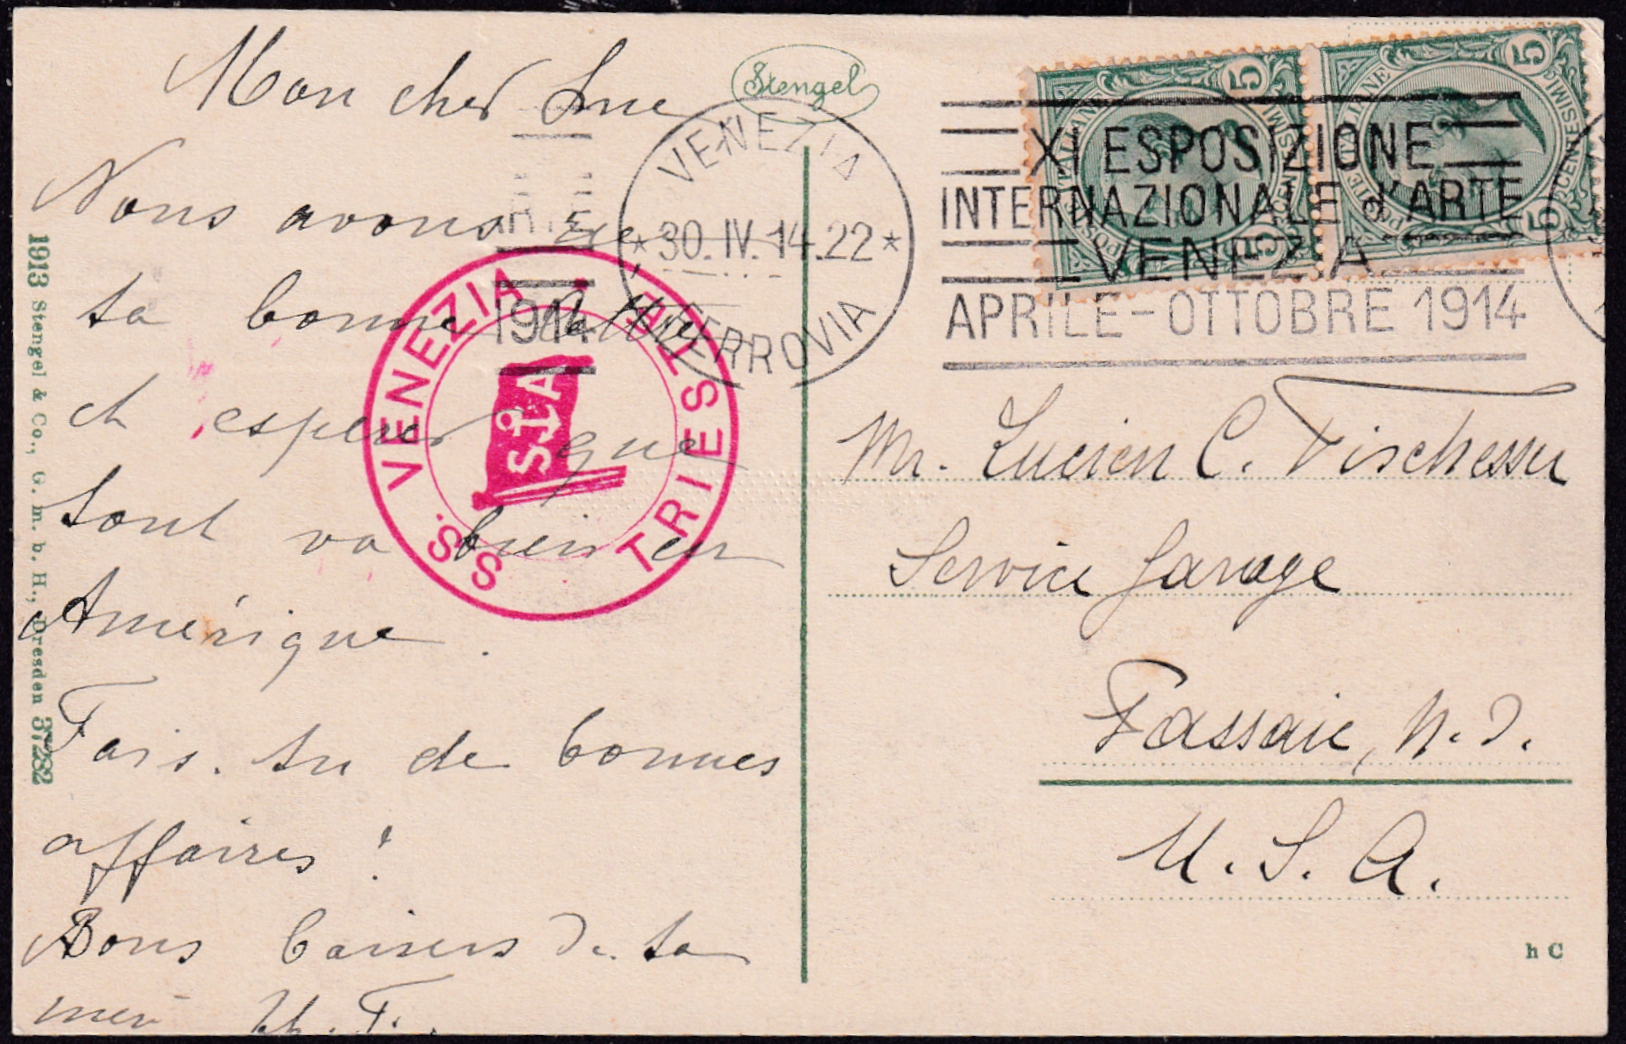 Mon cher Luc
Nous avons eu
ta bonne lettre
et espères que
tout va bien en
Amérique.
Fais-tu de bonnes
affaires !
Bons baisers de ta
mère
Stengel
1913 Stengel & Co., G. m. b. H., Dresden 37282
VENEZIA
* 30.IV.14.22 *
FERROVIA
ARTE
1914
XI ESPOSIZIONE
INTERNAZIONALE d'ARTE
VENEZIA
APRILE-OTTOBRE 1914
POSTE ITALIANE
5 CENTESIMI 5
POSTE ITALIANE
5 CENTESIMI 5
VENEZIA - TRIESTE
S.S.
TRIESTE
Mr. Lucien C. Tischesser
Service Garage
Passaic, N.J.
U.S.A.
h C